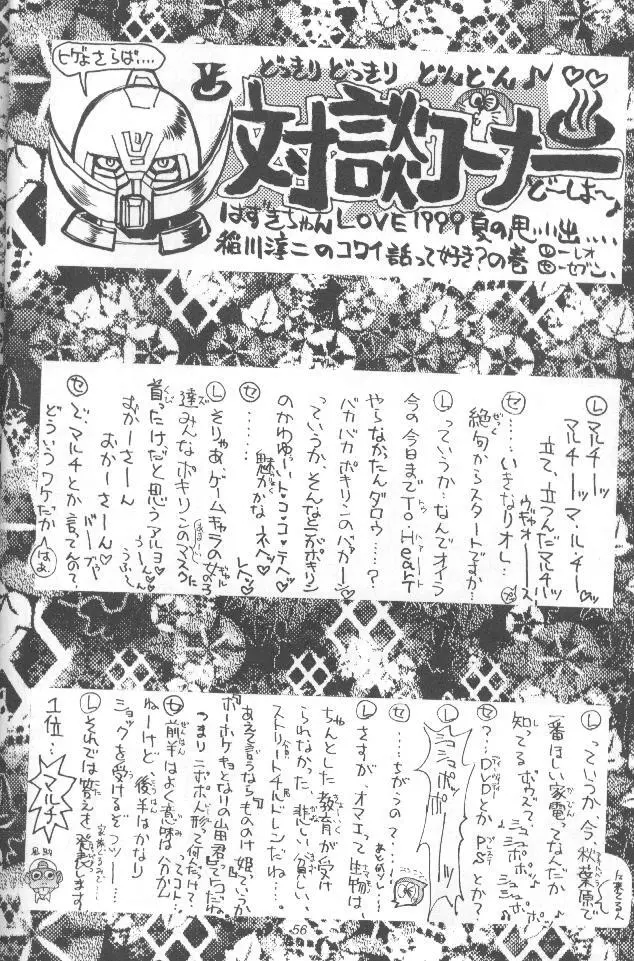 ヒゲよさらば‥‥
どっきりどっきり どんどん♪
対談コーナー
どーしぱ〜♪
はずきちゃんLOVE1999夏の思い出‥‥
稲川淳二のコワイ話って好き?の巻
Ⓛーレオ
セーセブン
Ⓛマルチーッ マルチーッ
マルチーッマ・ル・チー♡ッ
立て、立つんだマルチッ
ウギャオーース
セ‥‥いきなりオレ‥‥
絶句からスタートですか‥‥
Ⓛっていうか、なんでオイラ
今の今日までTo Heart
やらなかったんダロウ‥‥?
バカバカポキリンのバカーン♡
っていうか、そんなとこがポキリン
のかわゆーいト・コ・コ・テへ♡
セ‥‥‥ 魅力かな、ネへ♡
Ⓛそりゃあ、ゲームキャラの女の子
達みんなポキリンのマスクに
首ったけだと思うアルヨ♡
おかーさーん
おかーさーん♡
セで、マルチとか言ってんので、
どういうワケだか はぁ
Ⓛっていうか今、秋葉原で
一番ほしい家電ってなんだか
知ってるボウズ?
セ?‥DVDとかPSとか?
Ⓛシュコシュコポッポー!
セ‥‥ちがうの?‥‥
Ⓛさすが、オマエって生物は、
ちゃんとした教育が受け
られなかった、悲しい貧しい
ストリートチルドレンだね‥。
あえて言うなら『もののけ姫』っていうか
『ホーホケキョとなりの山田君』でつだね。
つまりニポポ人形って何だっけ?
ってコト‥
セ前半はよく意味は分かん
ねーけど、後半はかなり
ショックを受けるぞっッ‥‥
Ⓛそれでは答えを、発表します
1位‥ マルチ
56